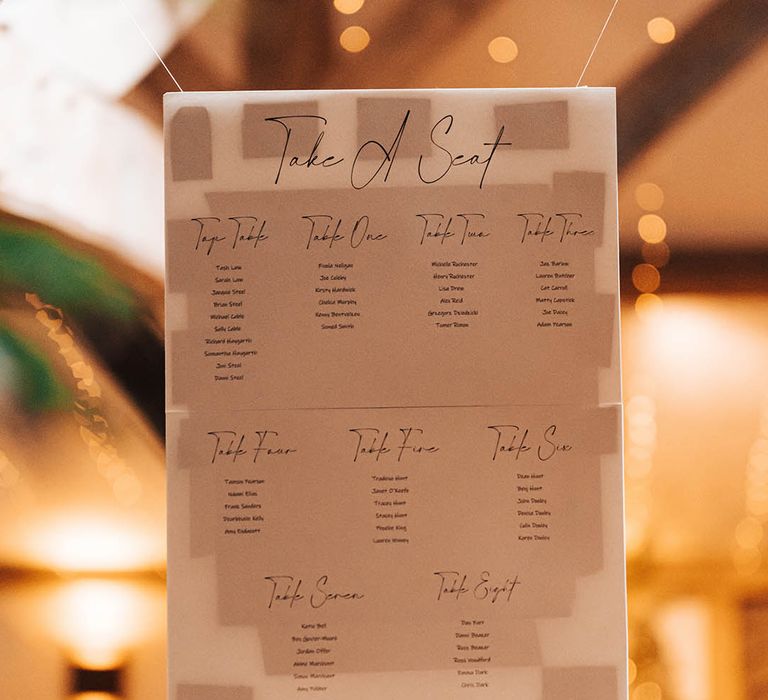 Take A Seat
Top Table
Tash Law
Sarah Law
Jacquie Steel
Brian Steel
Michael Cable
Sally Cable
Richard Haygarth
Samantha Haygarth
Jon Steel
Danni Steel
Table One
Fiona Neligan
Joe Coleby
Kirsty Hardwick
Chelsie Murphy
Kenny Bestvelsen
Sinead Smith
Table Two
Michelle Rochester
Henry Rochester
Lisa Drew
Alex Reid
Grzegorz Dziedzicki
Tamer Rimon
Table Three
Jas. Barlow
Lauren Butcher
Cat Carroll
Matty Copstick
Joe Dacey
Adam Pearson
Table Four
Tamsin Pearson
Naomi Elias
Frank Sanders
Dearbhaile Kelly
Amy Endacott
Table Five
Tradina Hunt
Janet O'Keefe
Tracey Hunt
Stacey Hunt
Phoebe King
Lauren Hinney
Table Six
Dean Hunt
Benj Hunt
John Dooley
Denise Dooley
Colin Dooley
Karen Dooley
Table Seven
Katie Bell
Ben
Jordan Offer
Abbie Marchant
Simon Marchant
Amy Palmer
Table Eight
Dan Burr
Danni Beamer
Ross Beamer
Ross Woodford
Emma Dark
Chris Dark